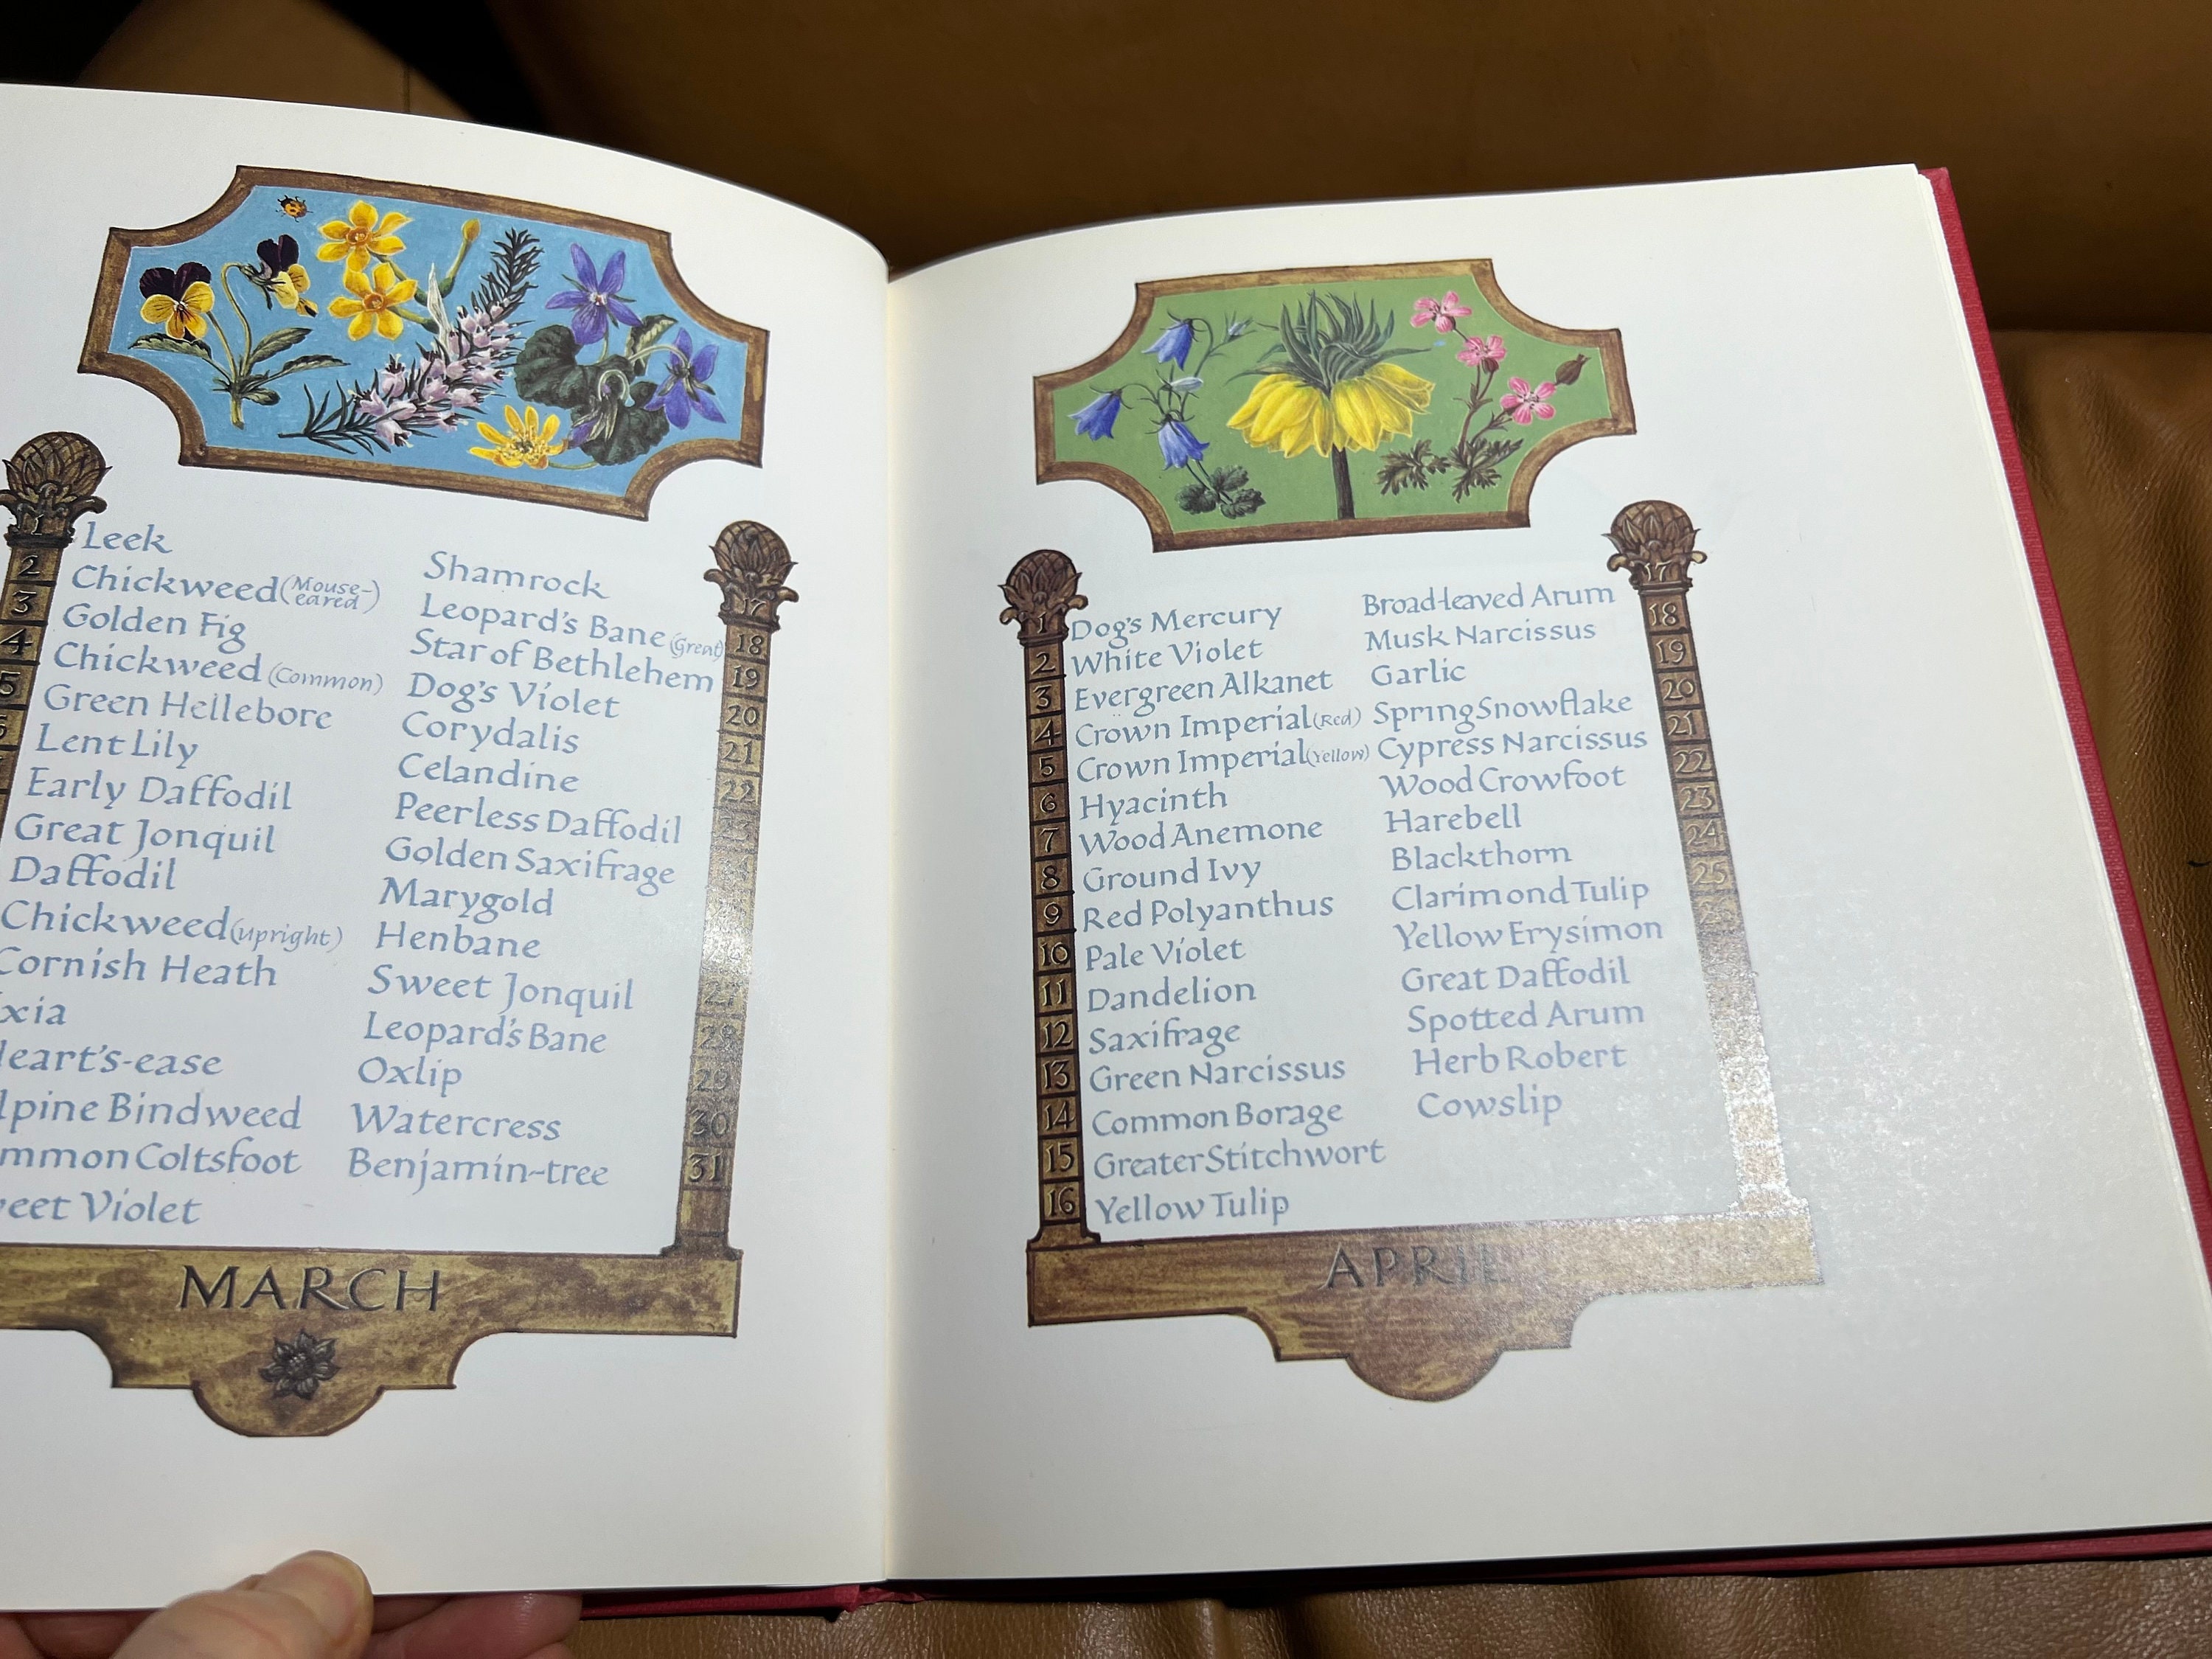 1
2
3
4
5
Leek
Chickweed (Mouse-eared)
Golden Fig
Chickweed (Common)
Green Hellebore
Lent Lily
Early Daffodil
Great Jonquil
Daffodil
Chickweed (Upright)
Cornish Heath
xia
eart's-ease
lpine Bindweed
mmon Coltsfoot
eet Violet
Shamrock
Leopard's Bane (Great)
Star of Bethlehem
Dog's Violet
Corydalis
Celandine
Peerless Daffodil
Golden Saxifrage
Marygold
Henbane
Sweet Jonquil
Leopard's Bane
Oxlip
Watercress
Benjamin-tree
17
18
19
20
21
22
23
27
28
29
30
31
MARCH
1
2
3
4
5
6
7
8
9
10
11
12
13
14
15
16
Dog's Mercury
White Violet
Evergreen Alkanet
Crown Imperial (Red)
Crown Imperial (Yellow)
Hyacinth
Wood Anemone
Ground Ivy
Red Polyanthus
Pale Violet
Dandelion
Saxifrage
Green Narcissus
Common Borage
Greater Stitchwort
Yellow Tulip
Broad-leaved Arum
Musk Narcissus
Garlic
Spring Snowflake
Cypress Narcissus
Wood Crowfoot
Harebell
Blackthorn
Clarimond Tulip
Yellow Erysimon
Great Daffodil
Spotted Arum
Herb Robert
Cowslip
17
18
19
20
21
22
23
24
25
26
APRIL